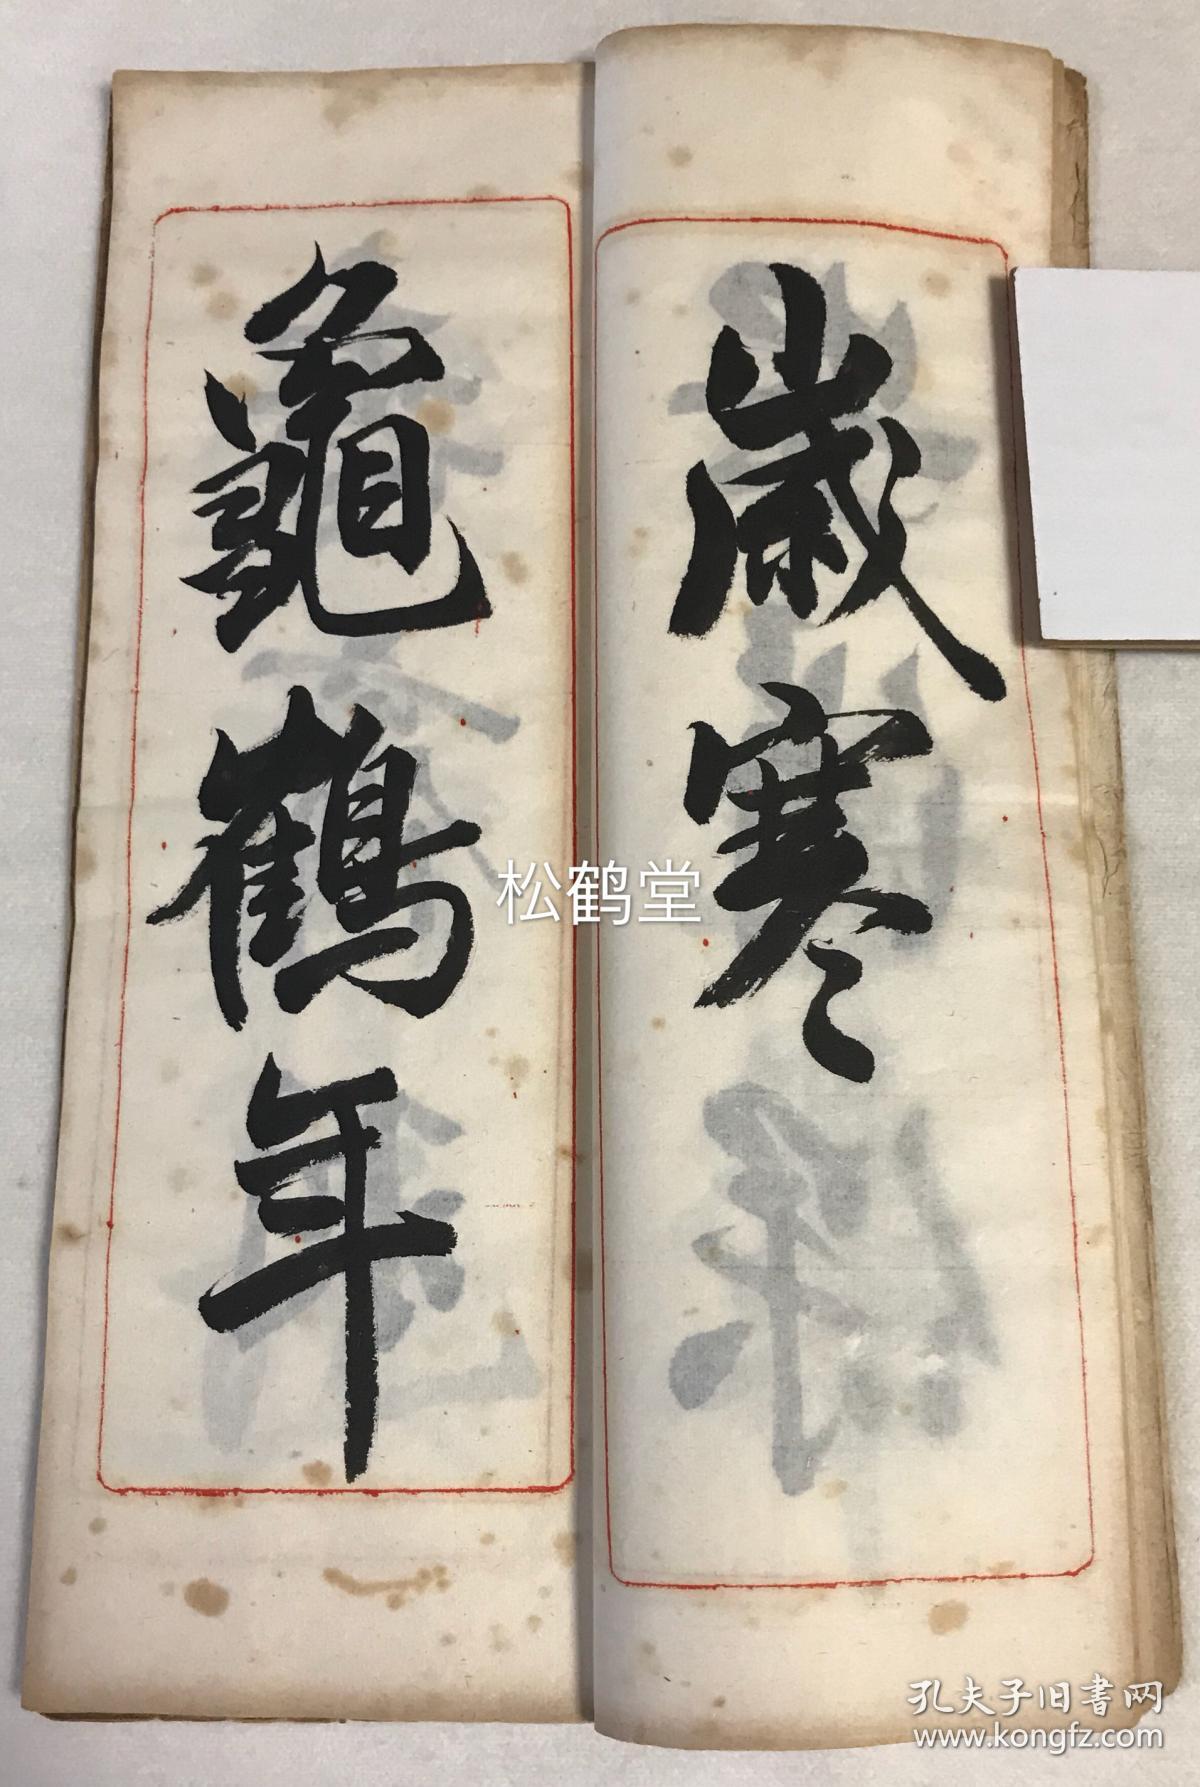 歳寒
龜鶴年
松鹤堂
孔夫子旧書网
www.kongfz.com